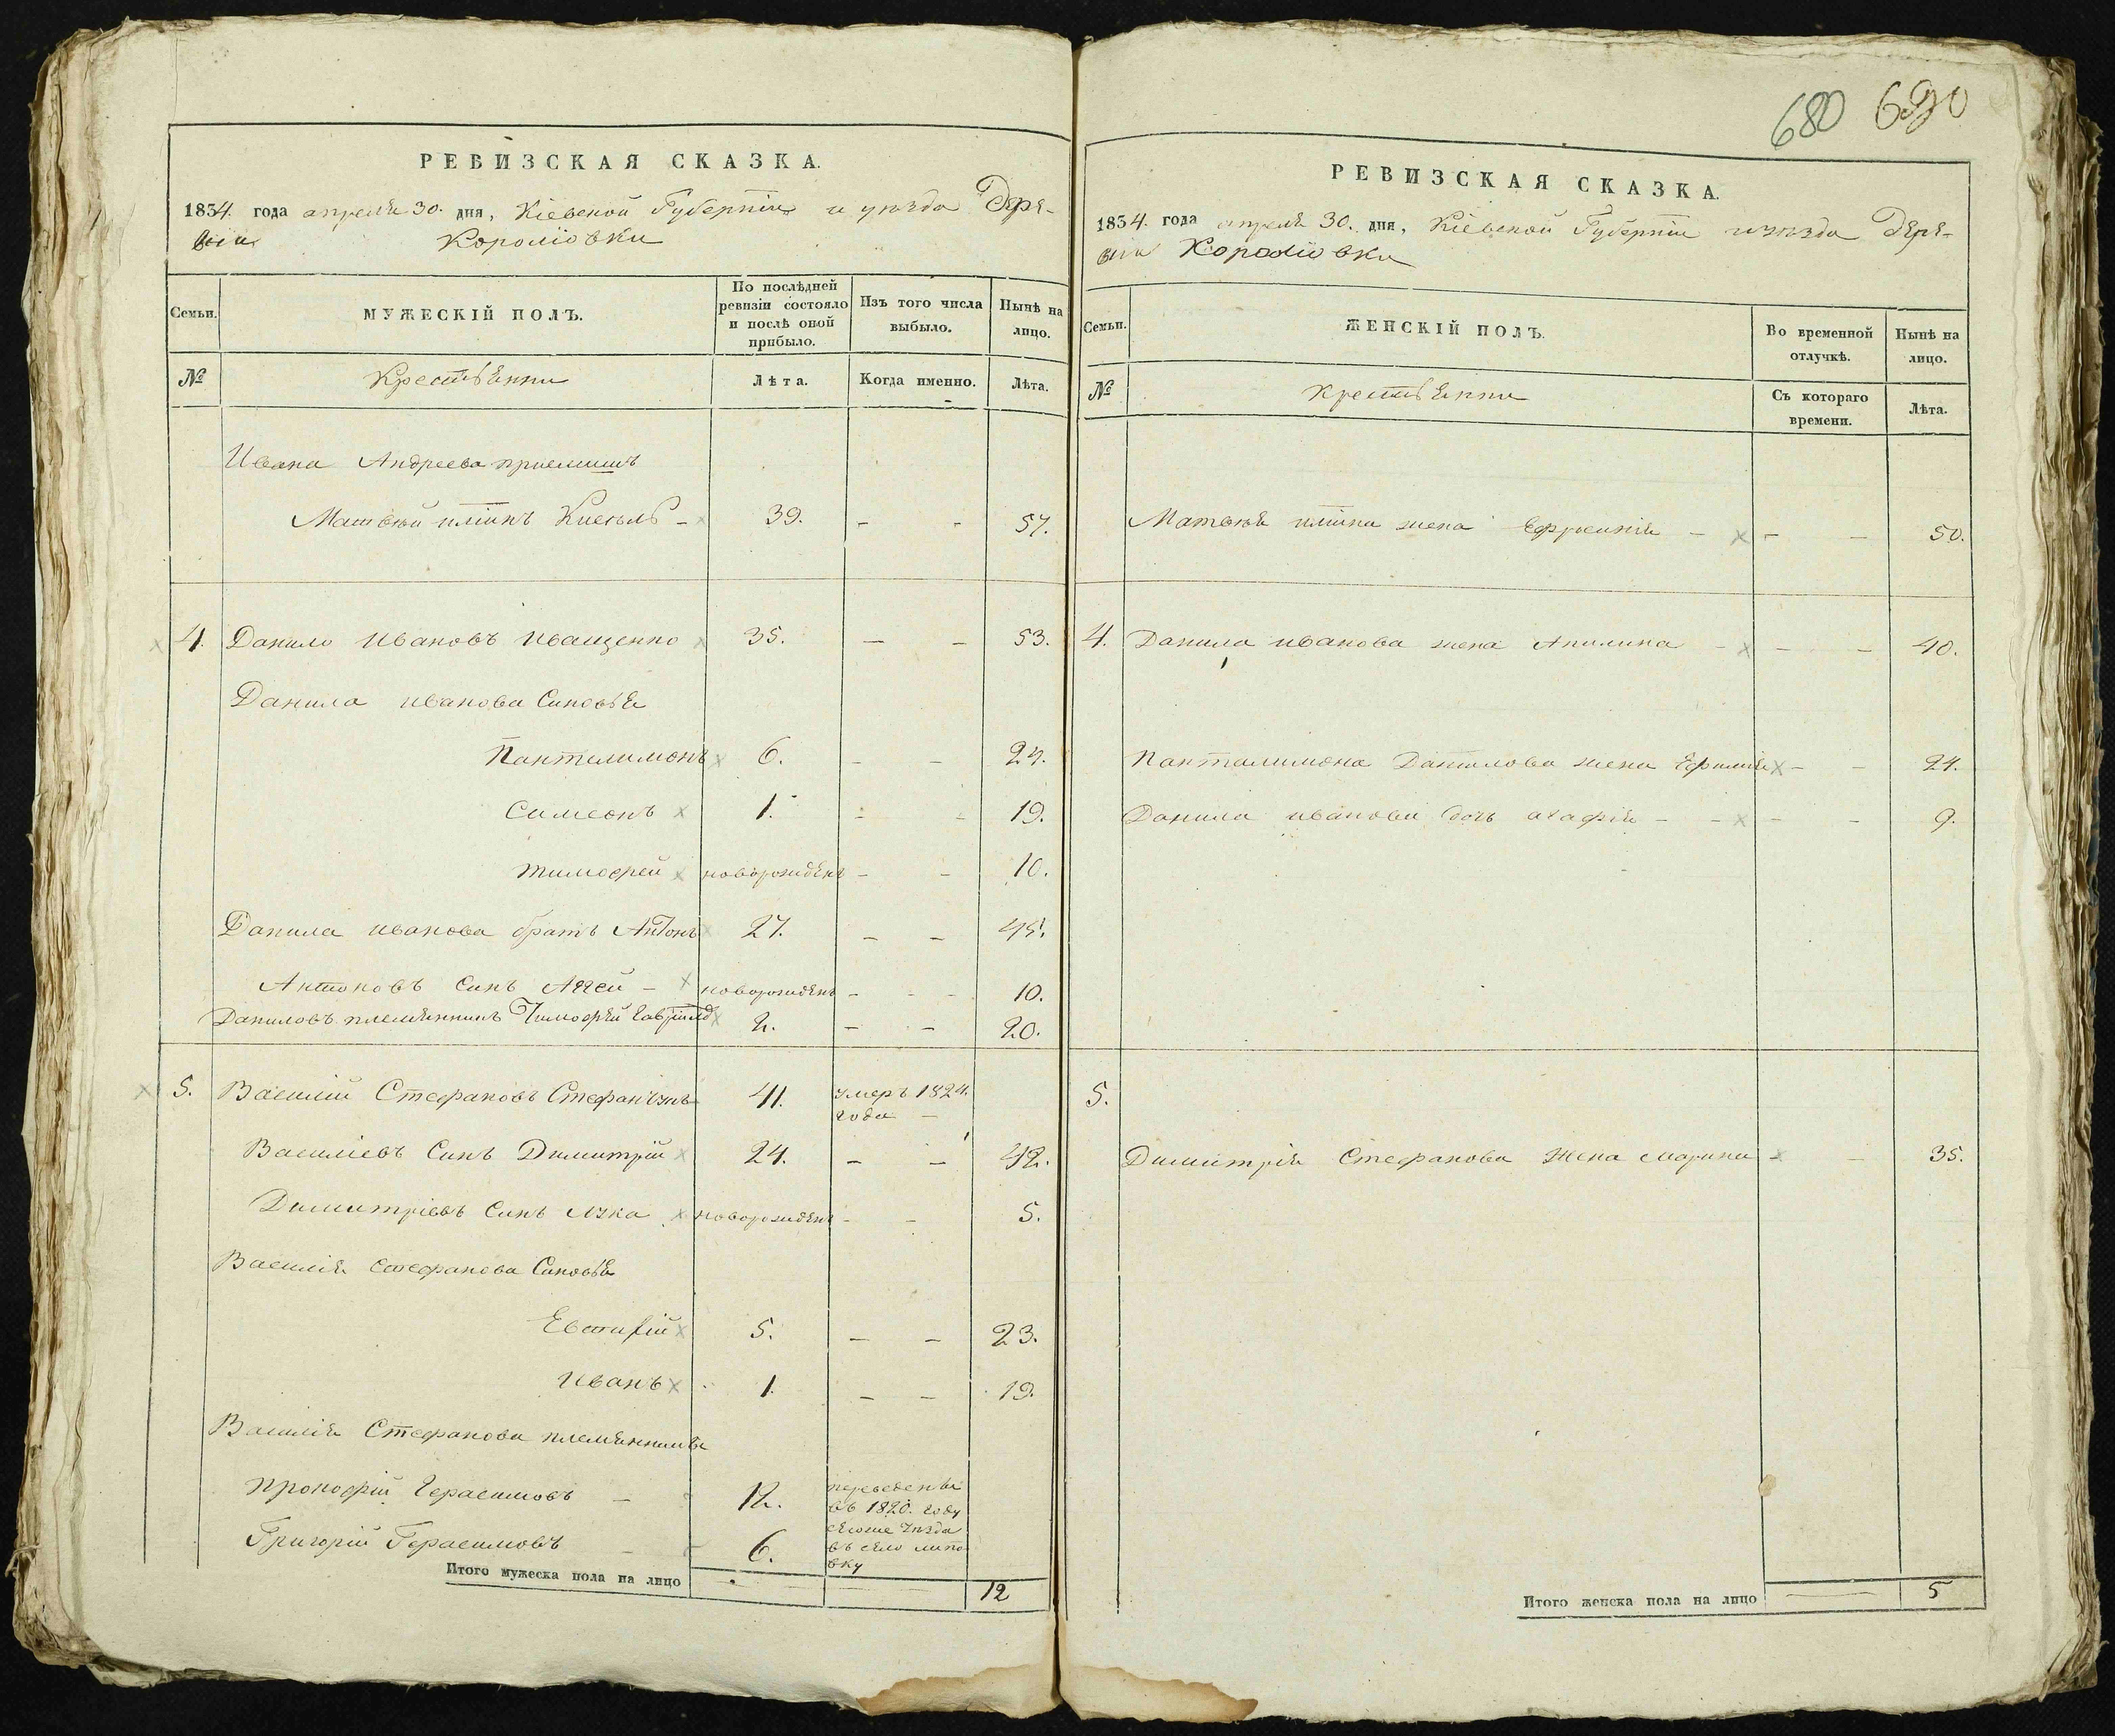 РЕВИЗСКАЯ СКАЗКА.
1834. года апреля 30. дня, Кіевской Губерніи и уезда Дере-
вни Королювки
Семьи.
МУЖЕСКІЙ ПОЛЪ.
По послѣдней ревизіи состояло и послѣ оной прибыло.
Изъ того числа выбыло.
Нынѣ на лицо.
№
Крестьянии
Лѣта.
Когда именно.
Лѣта.
Ивана Андреева приемишъ
Матвѣй Киселъ - 39. - - 57.
4. Данило Ивановъ Иващенко 35. - - 53.
Данила иванова Синовья
Пантелимонъ 6. - - 24.
Симеонъ 1. - - 19.
тимофей новорожденъ - - 10.
Данила иванова братъ Антонъ 27. - - 45.
Антоновъ Синъ Аггей - новорожденъ - - 10.
Даниловъ племянникъ Тимофей 2. - - 20.
5. Василій Стефановъ 41. умеръ 1824.
года -
Василіевъ Синъ Димитрій 24. - - 42.
Димитріевъ Синъ Лука новорожденъ - - 5.
Василія Стефанова Синовья
Евстафій 5. - - 23.
Иванъ 1. - - 19.
Василія Стефанова племянники
прокофій Герасимовъ - 12. переведены
въ 1820. году
Григорій Герасимовъ - 6. сегоже уезда
въ село липо-
вку
Итого мужеска пола на лицо 12
680 690
РЕВИЗСКАЯ СКАЗКА.
1834. года апреля 30. дня, Кіевской Губерніи и уезда Дере-
вни Королювки
Семьи.
ЖЕНСКІЙ ПОЛЪ.
Во временной отлучкѣ.
Нынѣ на лицо.
№
Крестьянии
Съ котораго времени.
Лѣта.
Матвѣя жена Ефросинія - - - 50.
4. Данила иванова жена Акилина - - - 40.
Панталимона Данилова жена Ефимия - - 24.
Данила иванова дочь агафія - - - - 9.
5.
Димитрія Стефанова жена Марина - - 35.
Итого женска пола на лицо 5